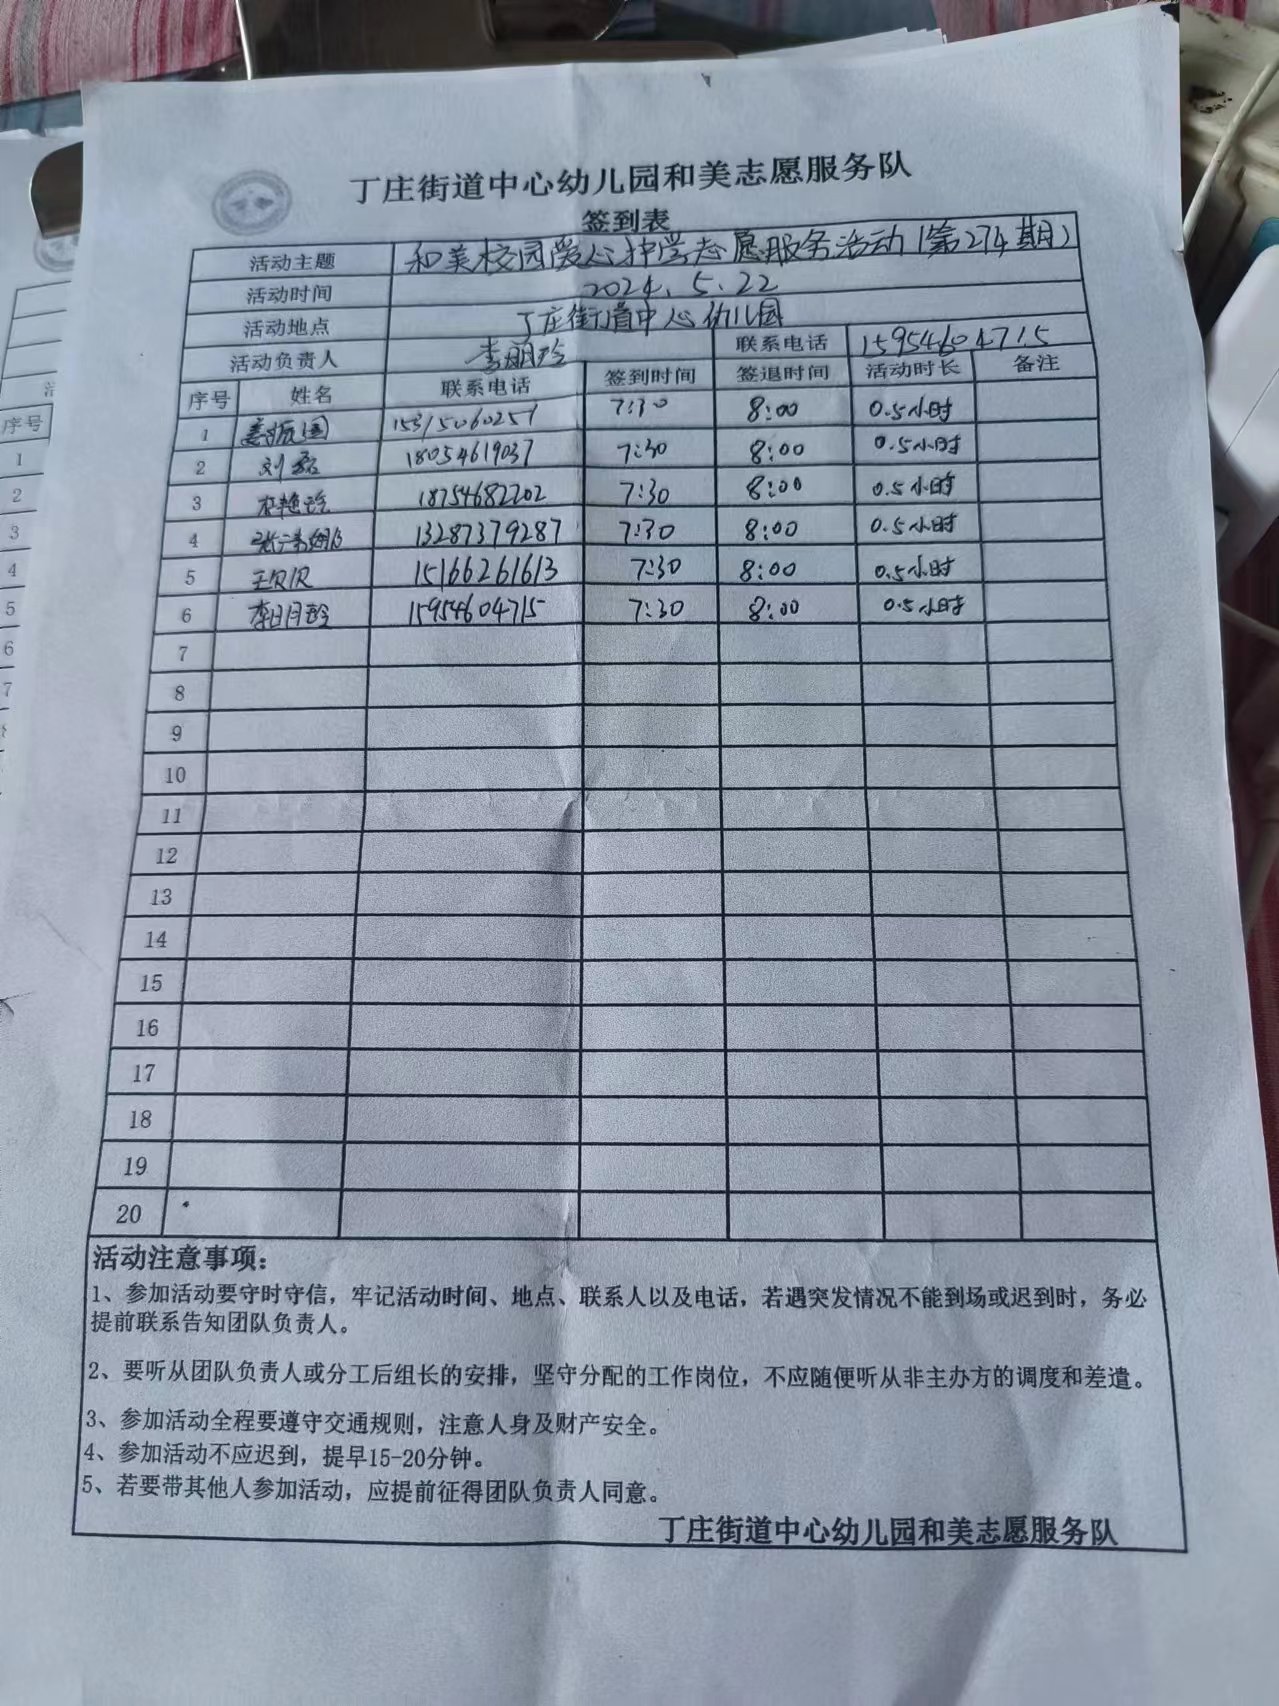 丁庄街道中心幼儿园和美志愿服务队
签到表
活动主题 和美校园爱心护学志愿服务活动(第274期)
活动时间 2024.5.22
活动地点 丁庄街道中心幼儿园
活动负责人 李明玲 联系电话 15954604715
序号 姓名 联系电话 签到时间 签退时间 活动时长 备注
1 姜振国 15315060257 7:30 8:00 0.5小时
2 刘磊 18054619037 7:30 8:00 0.5小时
3 18754682202 7:30 8:00 0.5小时
4 13287379287 7:30 8:00 0.5小时
5 王贝贝 15166261613 7:30 8:00 0.5小时
6 李明玲 15954604715 7:30 8:00 0.5小时
7
8
9
10
11
12
13
14
15
16
17
18
19
20
活动注意事项:
1、参加活动要守时守信，牢记活动时间、地点、联系人以及电话，若遇突发情况不能到场或迟到时，务必
提前联系告知团队负责人。
2、要听从团队负责人或分工后组长的安排，坚守分配的工作岗位，不应随便听从非主办方的调度和差遣。
3、参加活动全程要遵守交通规则，注意人身及财产安全。
4、参加活动不应迟到，提早15-20分钟。
5、若要带其他人参加活动，应提前征得团队负责人同意。
丁庄街道中心幼儿园和美志愿服务队
序号
1
2
3
4
5
6
7